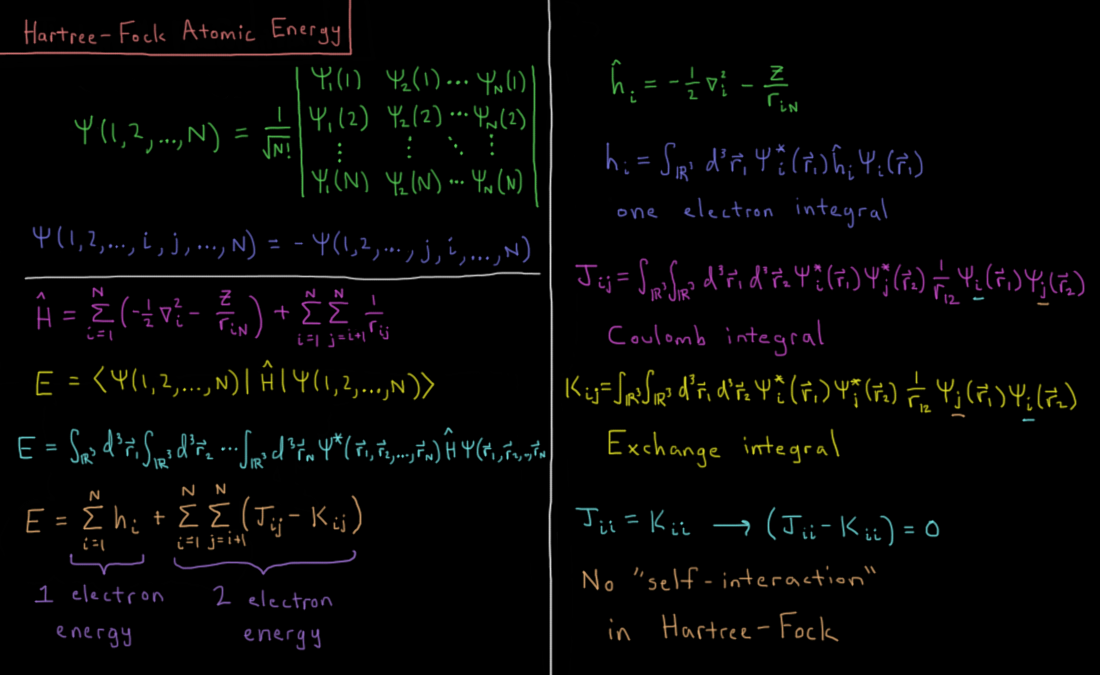 Hartree-Fock Atomic Energy
Ψ(1,2,...,N) = 1/√N! | Ψ₁(1) Ψ₂(1) ··· Ψ_N(1) |
| Ψ₁(2) Ψ₂(2) ··· Ψ_N(2) |
| ⋮ ⋮ ⋱ ⋮ |
| Ψ₁(N) Ψ₂(N) ··· Ψ_N(N) |
Ψ(1,2,...,i,j,...,N) = - Ψ(1,2,...,j,i,...,N)
Ĥ = Σ_{i=1}^{N} (-½ ∇ᵢ² - Z/r_{iN}) + Σ_{i=1}^{N} Σ_{j=i+1}^{N} 1/r_{ij}
E = ⟨Ψ(1,2,...,N)| Ĥ |Ψ(1,2,...,N)⟩
E = ∫_{ℝ³} d³r⃗₁ ∫_{ℝ³} d³r⃗₂ ··· ∫_{ℝ³} d³r⃗_N Ψ*(r⃗₁,r⃗₂,...,r⃗_N) Ĥ Ψ(r⃗₁,r⃗₂,...,r⃗_N
E = Σ_{i=1}^{N} hᵢ + Σ_{i=1}^{N} Σ_{j=i+1}^{N} (J_{ij} - K_{ij})
1 electron energy
2 electron energy
ĥᵢ = -½ ∇ᵢ² - Z/r_{iN}
hᵢ = ∫_{ℝ³} d³r⃗₁ Ψᵢ*(r⃗₁) ĥᵢ Ψᵢ(r⃗₁)
one electron integral
J_{ij} = ∫_{ℝ³} ∫_{ℝ³} d³r⃗₁ d³r⃗₂ Ψᵢ*(r⃗₁) Ψⱼ*(r⃗₂) 1/r₁₂ Ψᵢ(r⃗₁) Ψⱼ(r⃗₂)
Coulomb integral
K_{ij} = ∫_{ℝ³} ∫_{ℝ³} d³r⃗₁ d³r⃗₂ Ψᵢ*(r⃗₁) Ψⱼ*(r⃗₂) 1/r₁₂ Ψⱼ(r⃗₁) Ψᵢ(r⃗₂)
Exchange integral
J_{ii} = K_{ii} ⟶ (J_{ii} - K_{ii}) = 0
No "self-interaction"
in Hartree-Fock